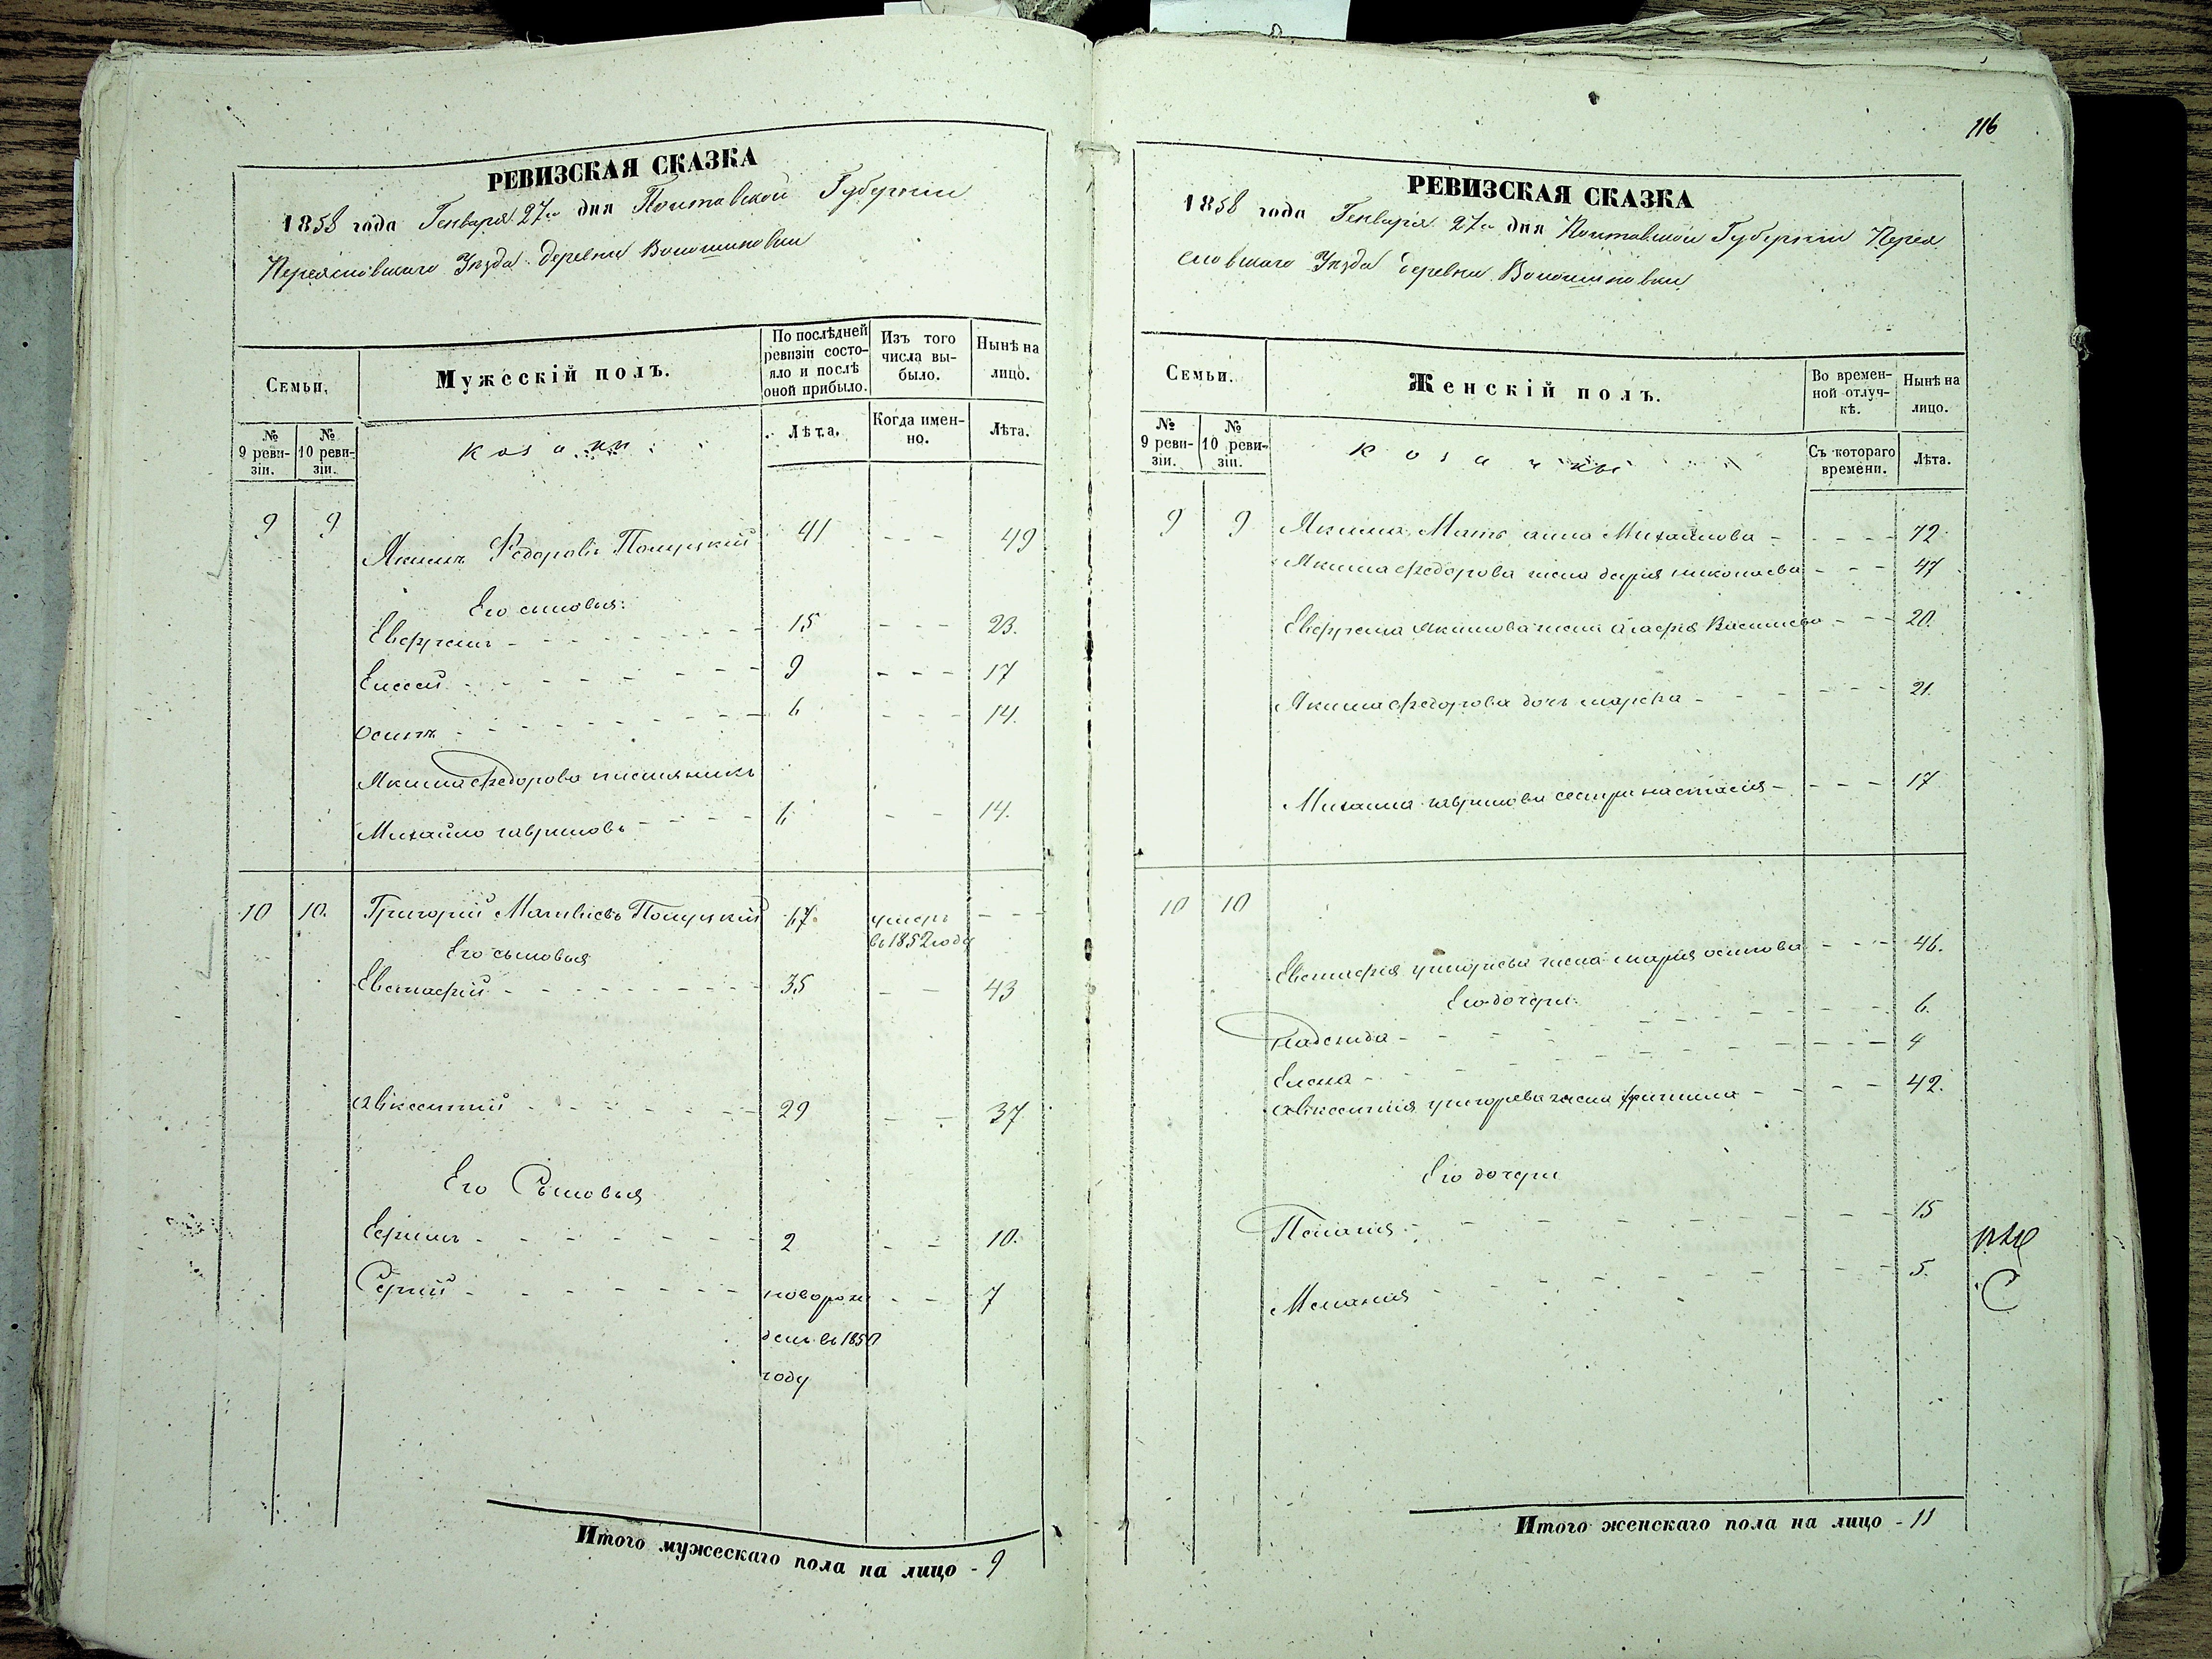 РЕВИЗСКАЯ СКАЗКА
1858 года Генваря 27го дня Полтавской Губерніи
Переясловскаго Уезда деревни Волошиновки
Семьи.
Мужескій полъ.
По послѣдней ревизіи состояло и послѣ оной прибыло.
Изъ того числа выбыло.
Нынѣ на лицо.
№ 9 ревизіи.
№ 10 ревизіи.
Козаки
Лѣта.
Когда именно.
Лѣта.
9 9 Якимъ Федоровъ Полуцкий 41 - - - 49
Его сыновья:
Евфремъ - 15 - - - 23.
Елисей - 9 - - - 17
Осипъ - 6 - - - 14.
Якима Федорова племянникъ
Михайло Гавриловъ - 6 - - 14.
10 10. Григорий Матвиевъ Полуцкий 67. умеръ въ 1852 году - - -
Его сыновья
Евстафий - 35 - - 43
Авксентий - 29 - - 37
Его Сыновья
Ефимъ - 2 - - 10.
Сергий - новорож - - 7
денъ въ 1850
году
Итого мужескаго пола на лицо - 9
116
РЕВИЗСКАЯ СКАЗКА
1858 года Генваря 27го дня Полтавской Губерніи Перея
словскаго Уезда деревни Волошиновки
Семьи.
Женскій полъ.
Во временной отлучкѣ.
Нынѣ на лицо.
№ 9 ревизіи.
№ 10 ревизіи.
Козачки
Съ котораго времени.
Лѣта.
9 9 Якима Мать анна Михайлова - - - - 72.
Якима Федорова жена дарья николаева - - - 47
Евфрема Якимова жена Агафия Василиева - - - 20.
Якима Федорова дочь марфа - - - - 21.
Михаила гаврилова сестра настасия - - - - 17
10 10
Евстафия григориева жена мария осипова - - - 46.
Его дочери.
надежда - 6.
Елена - 4
Авксентия григорева жена - - - - 42.
Его дочери
Пелагия - 15
Мелания - 5.
Итого женскаго пола на лицо - 11